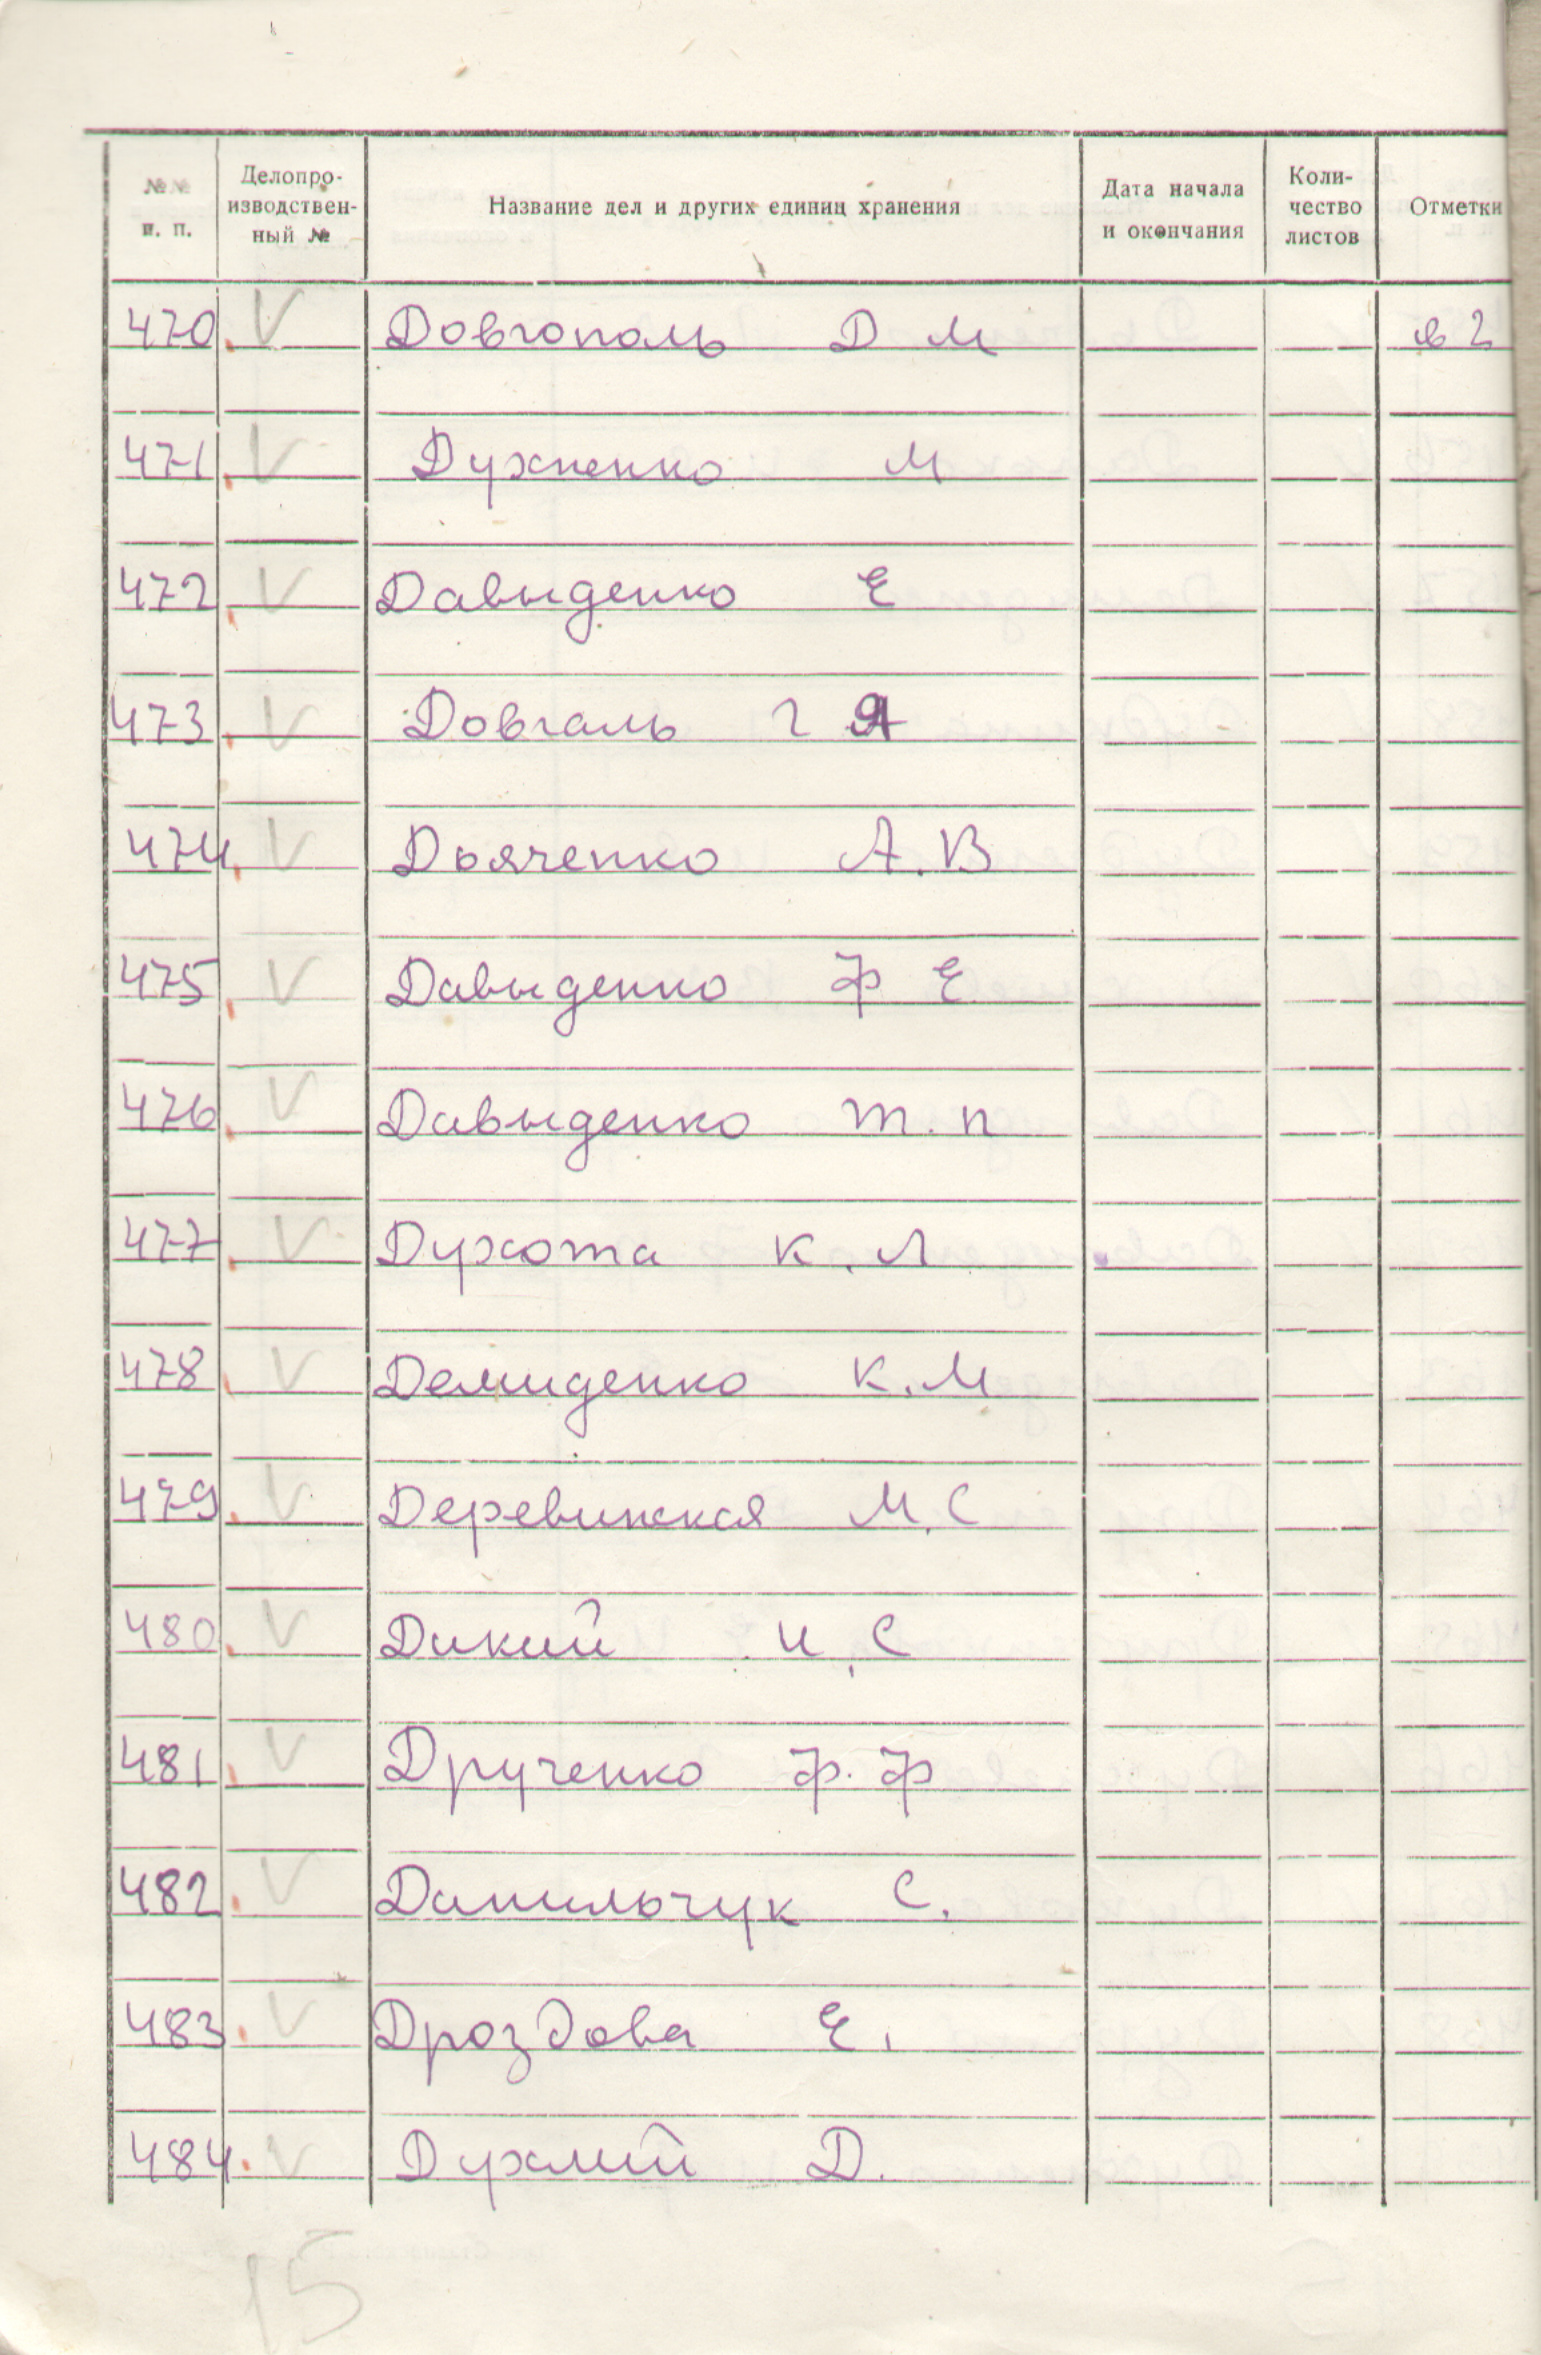 №№ п. п. Делопро- изводствен- ный № Название дел и других единиц хранения Дата начала и окончания Коли- чество листов Отметки
470. V Довгополь Д М
471. V Духненко М
472. V Давыденко Е
473. V Довгаль Г Я
474. V Дьяченко А. В
475. V Давыденко Ф Е
476. V Давыденко Т. П
477. V Духота К. Л
478. V Демиденко К. М
479. V Деревинская М. С
480. V Дикий И. С
481. V Друченко Ф. Ф
482. V Данильчук С.
483. V Дроздова Е.
484. V Духлий Д.
15